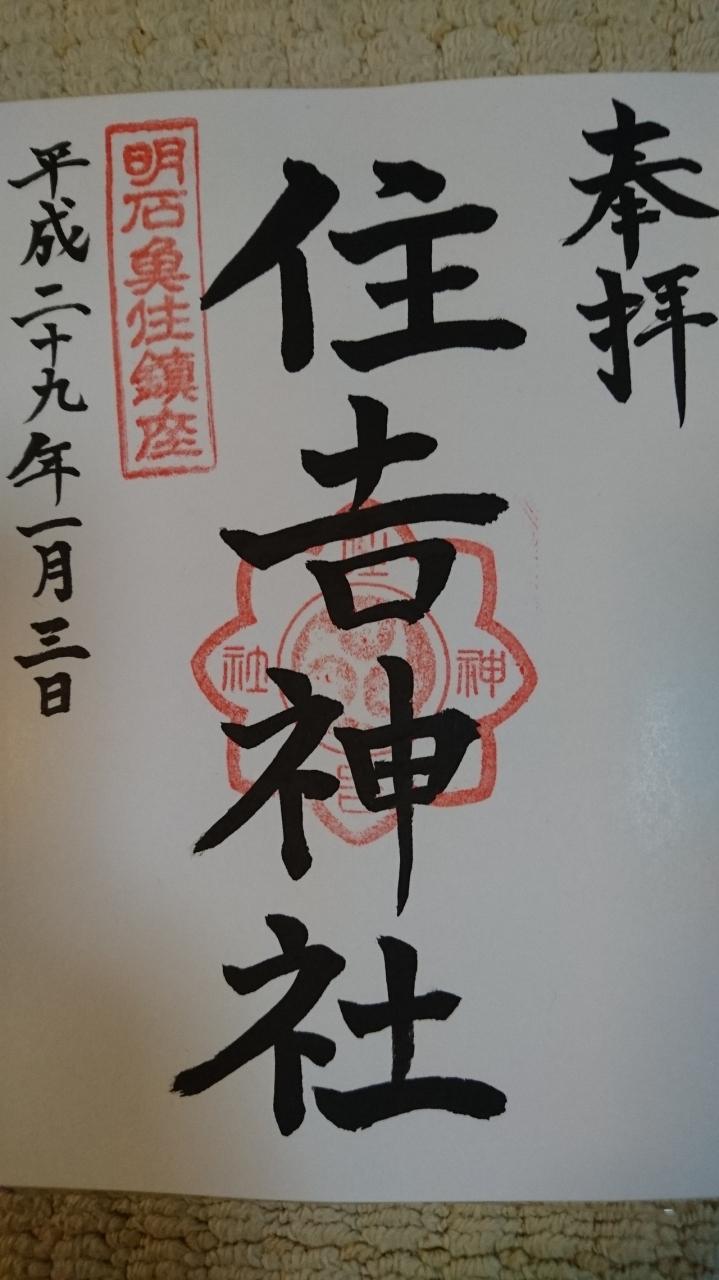 奉拝
住吉神社
明石魚住鎮座
平成二十九年一月三日
住
神
社